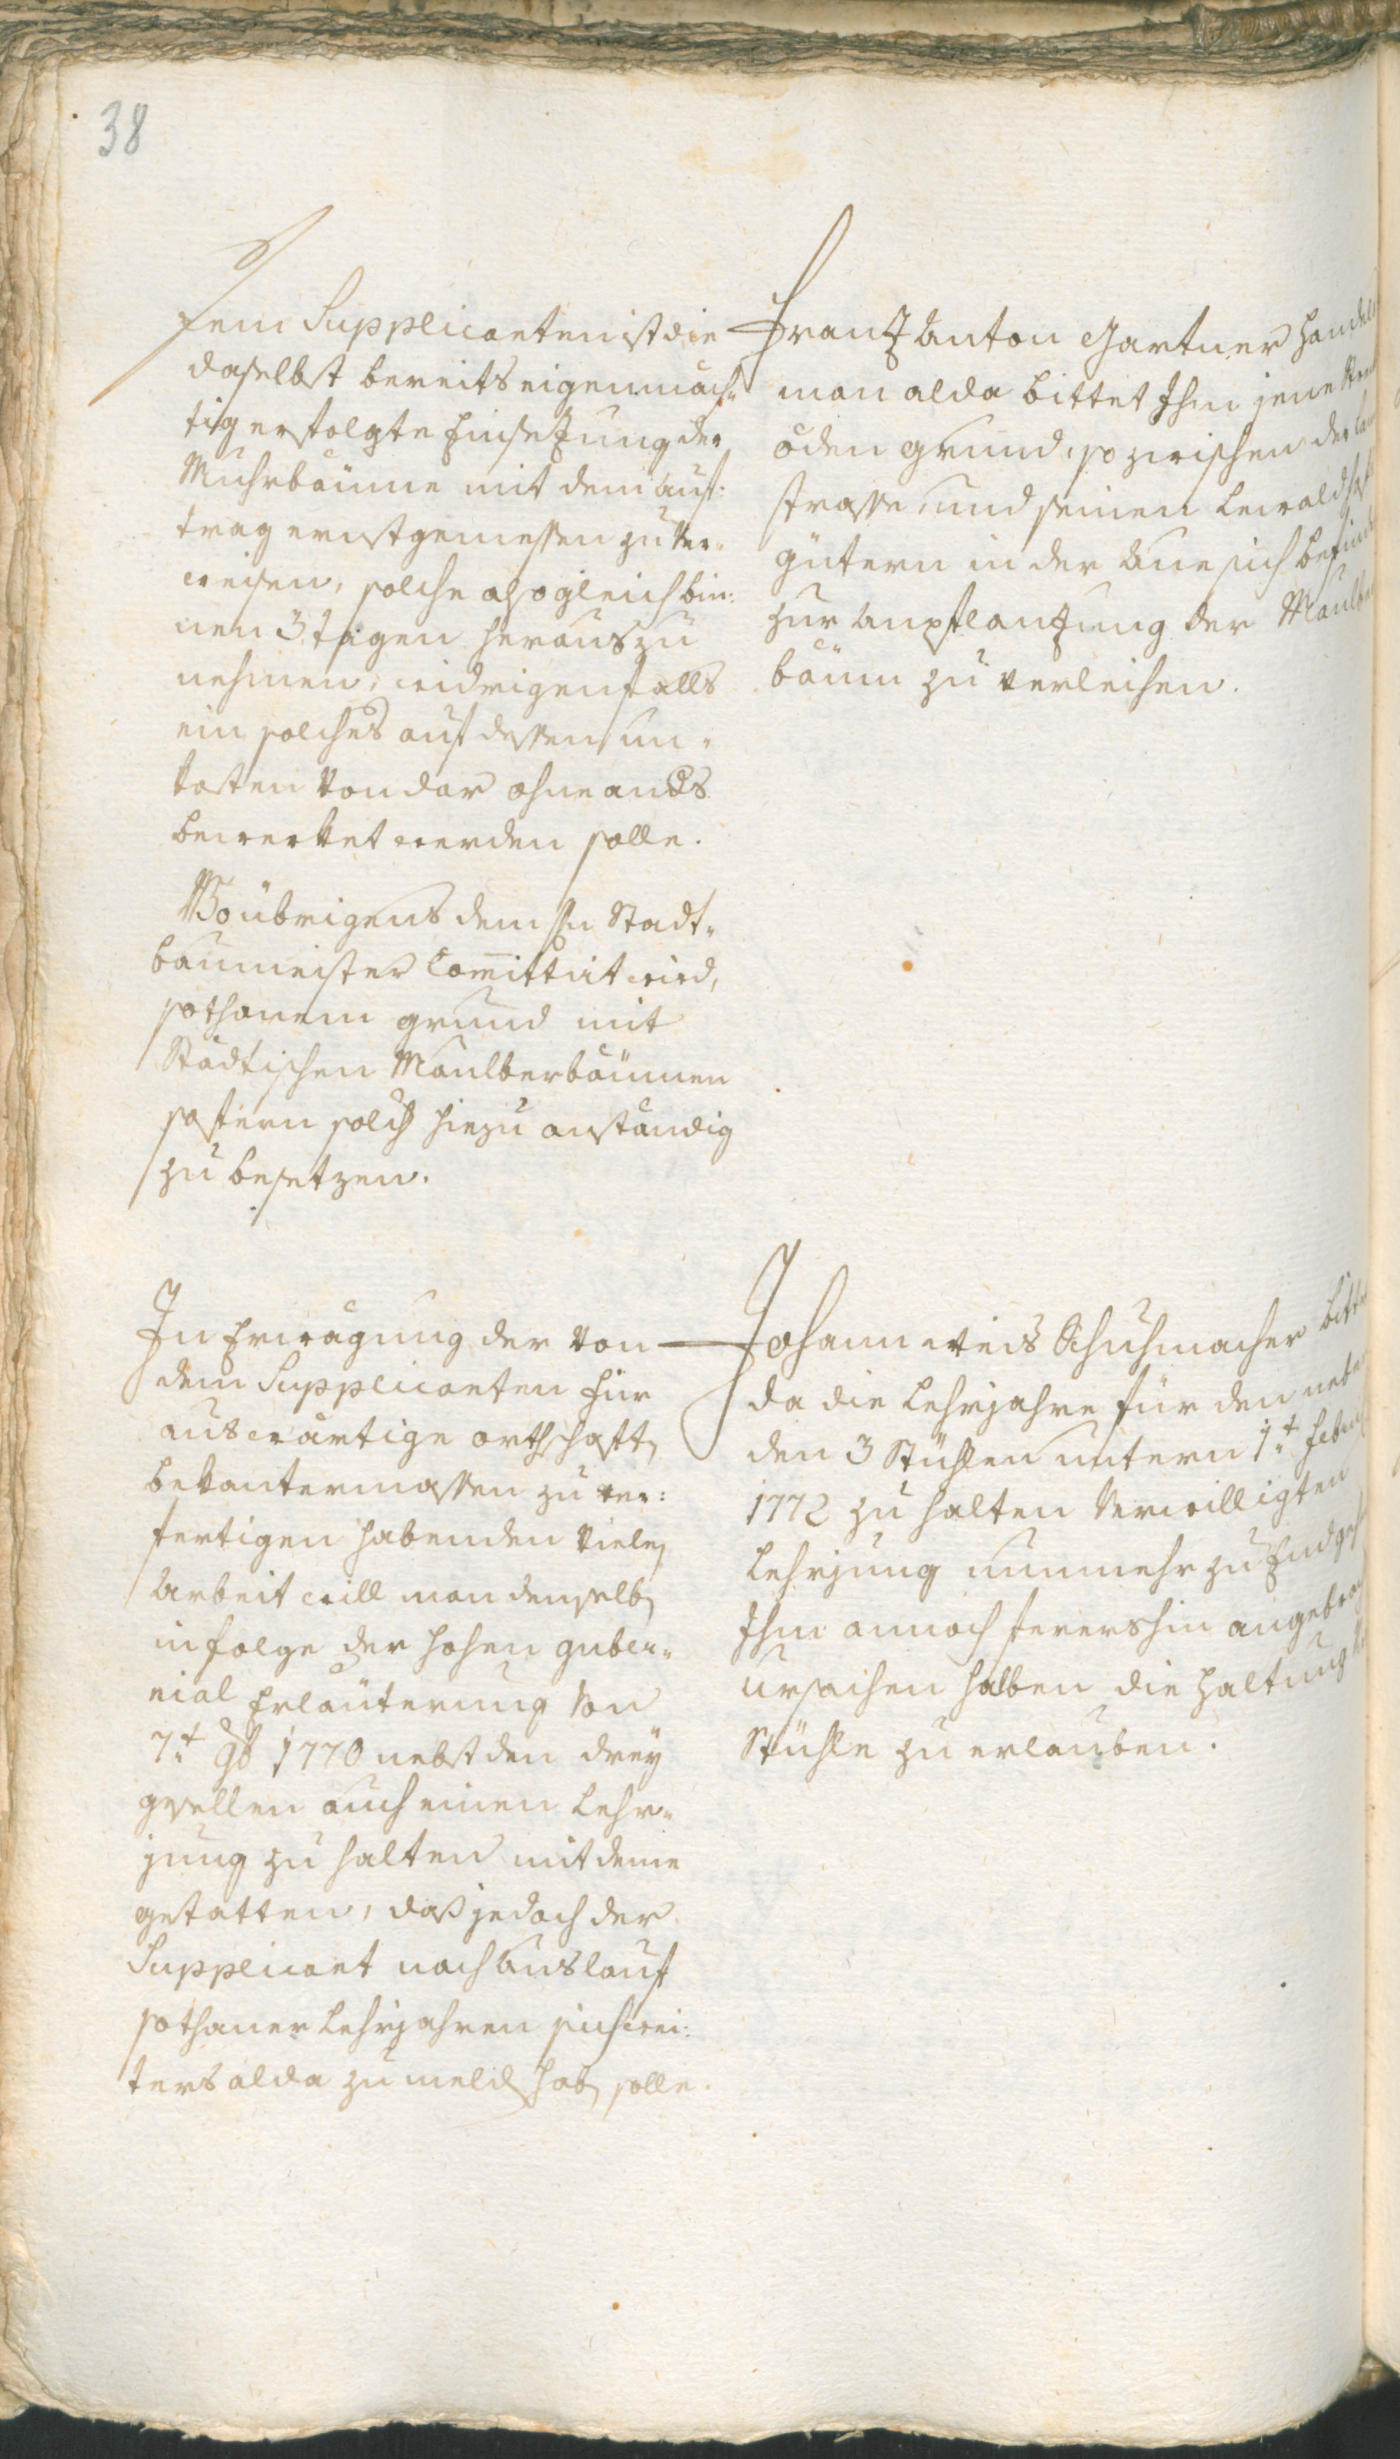 38
Dem Supplicanten ist die
daselbst bereits eigenmäch„
tig erfolgte Einsetzung der
Muhrbäume mit dem Auf:
trag ernstgemessen zu ver„
weisen, solche alsogleich bin:
nen 3 tagen heraus zu
nehmen, widrigenfalls
ein solches auf dessen un„
kosten von dar ohne anders
bewerket werden solle.
Wo übrigens dem Hn Stadt„
baumeister Comittirt wird,
sothanem grund mit
Städtischen Maulberbäumen
sofern solch hiezu anständig
zu besetzen.
Frantz Anton Gartner Handels
man alda bittet Ihm jene
öden grund, so zwischen der
strasse, und seinen Lewald
gütern in der Aue sich befind
zur Anpflantzung der Maulber
bäum zu verleihen.
In Erwägung der von
dem Supplicanten für
auswärtige orthschaften
bekantermassen zu ver:
fertigen habenden vielen
Arbeit will man demselben
in folge der hohen guber„
nial Erläuterung von
7t 9b 1770 nebst den drey
gsellen auch einen Lehr„
jung zu halten mit deme
gstatten, daß jedoch der
Supplicant nach Auslauf
sothaner Lehrjahren sich wei:
ters alda zu melden haben solle.
Johann Weis Schuhmacher bitt
da die Lehrjahre für den neben
den 3 Stühlen untern 1t Febr
1772 zu halten verwilligten
Lehrjung nunmehr zu End
Ihm annoch fernershin angebrach
ursachen halben die Haltung
Stühle zu erlauben.